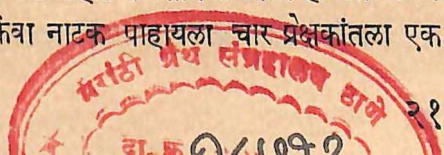 नाटक पाहायला चार प्रेक्षकांतला एक
मराठी ग्रंथ संग्रहालय ठाणे
२१
दा. क्र